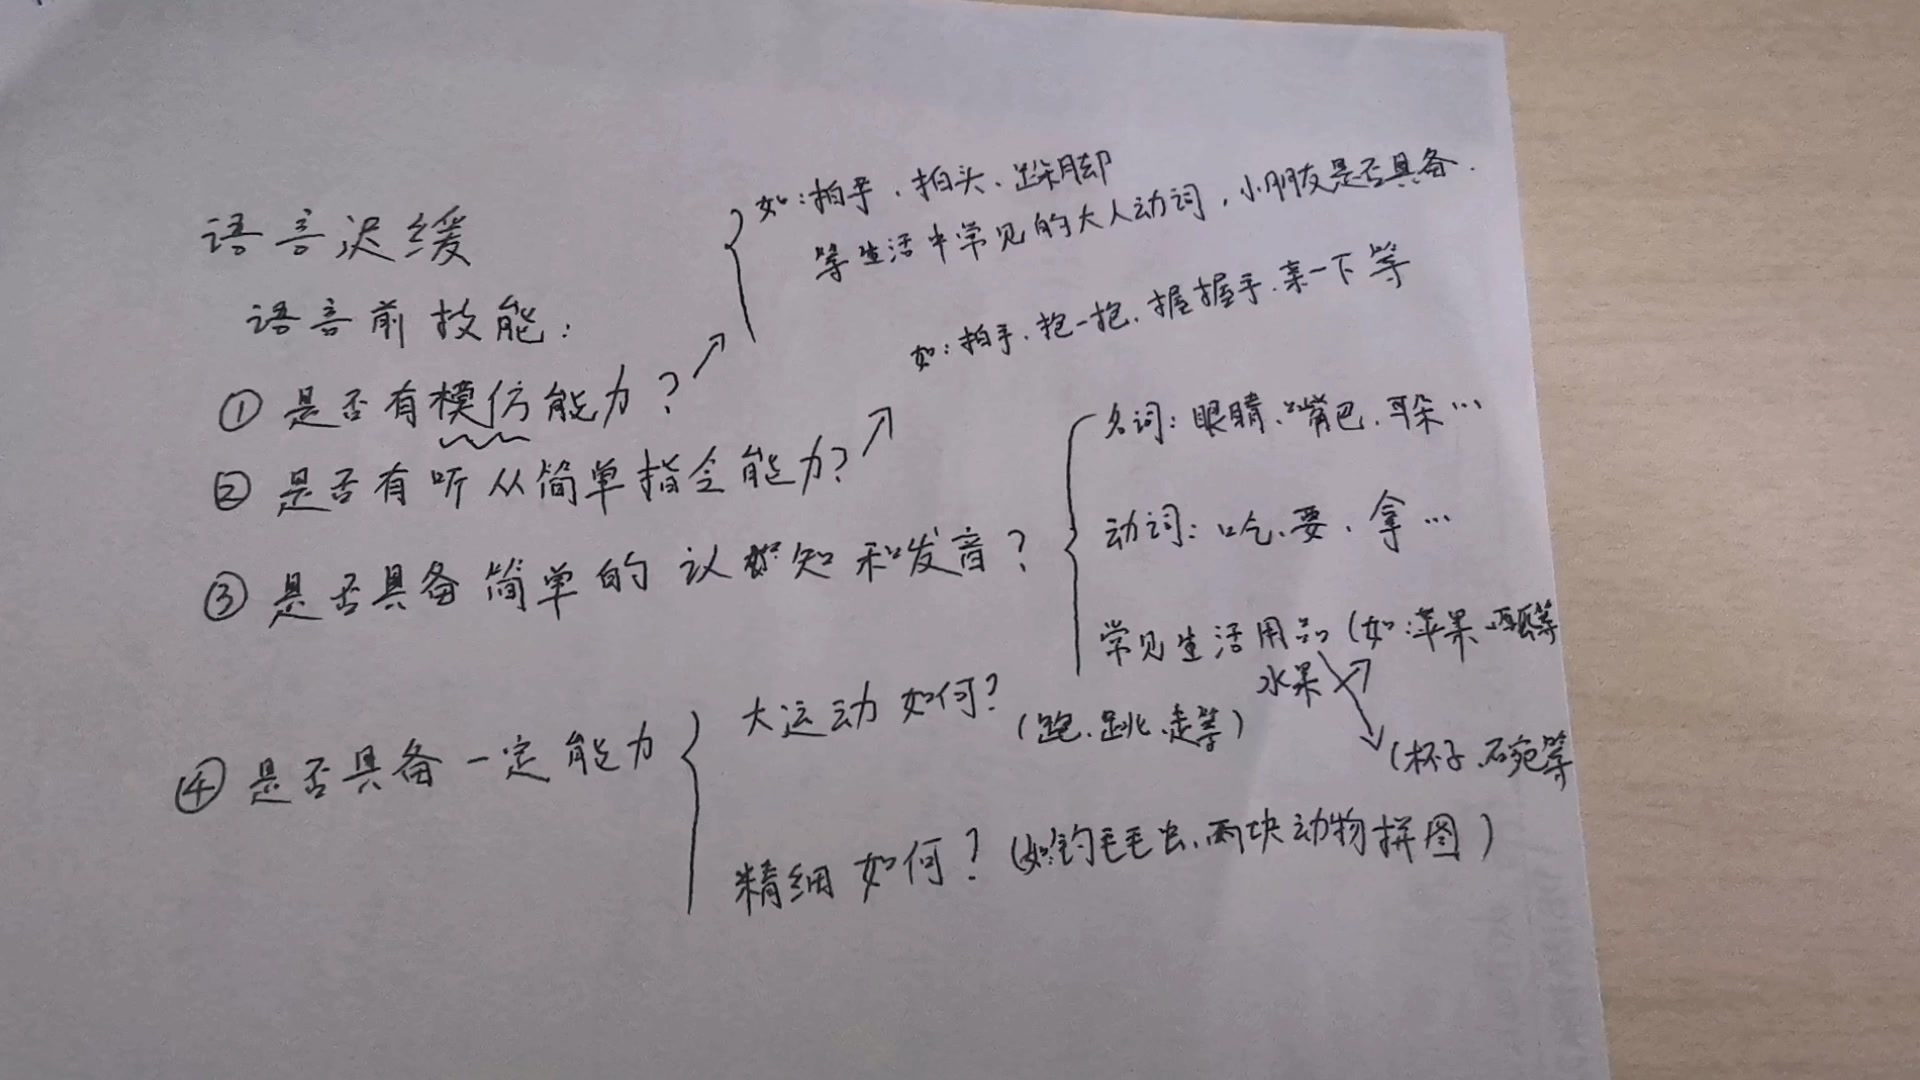 语言迟缓
语言前技能：
① 是否有模仿能力？
如：拍手、拍头、跺脚
等生活中常见的大人动词，小朋友是否具备.
② 是否有听从简单指令能力？
如：拍手、抱一抱、握握手、亲一下等
③ 是否具备简单的认知和发音？
名词：眼睛、嘴巴、耳朵…
动词：吃、要、拿…
常见生活用品（如：苹果、等
水果
（杯子、碗等
④ 是否具备一定能力
大运动如何？（跑、跳、走等）
精细如何？（如：钓毛毛虫、两块动物拼图）